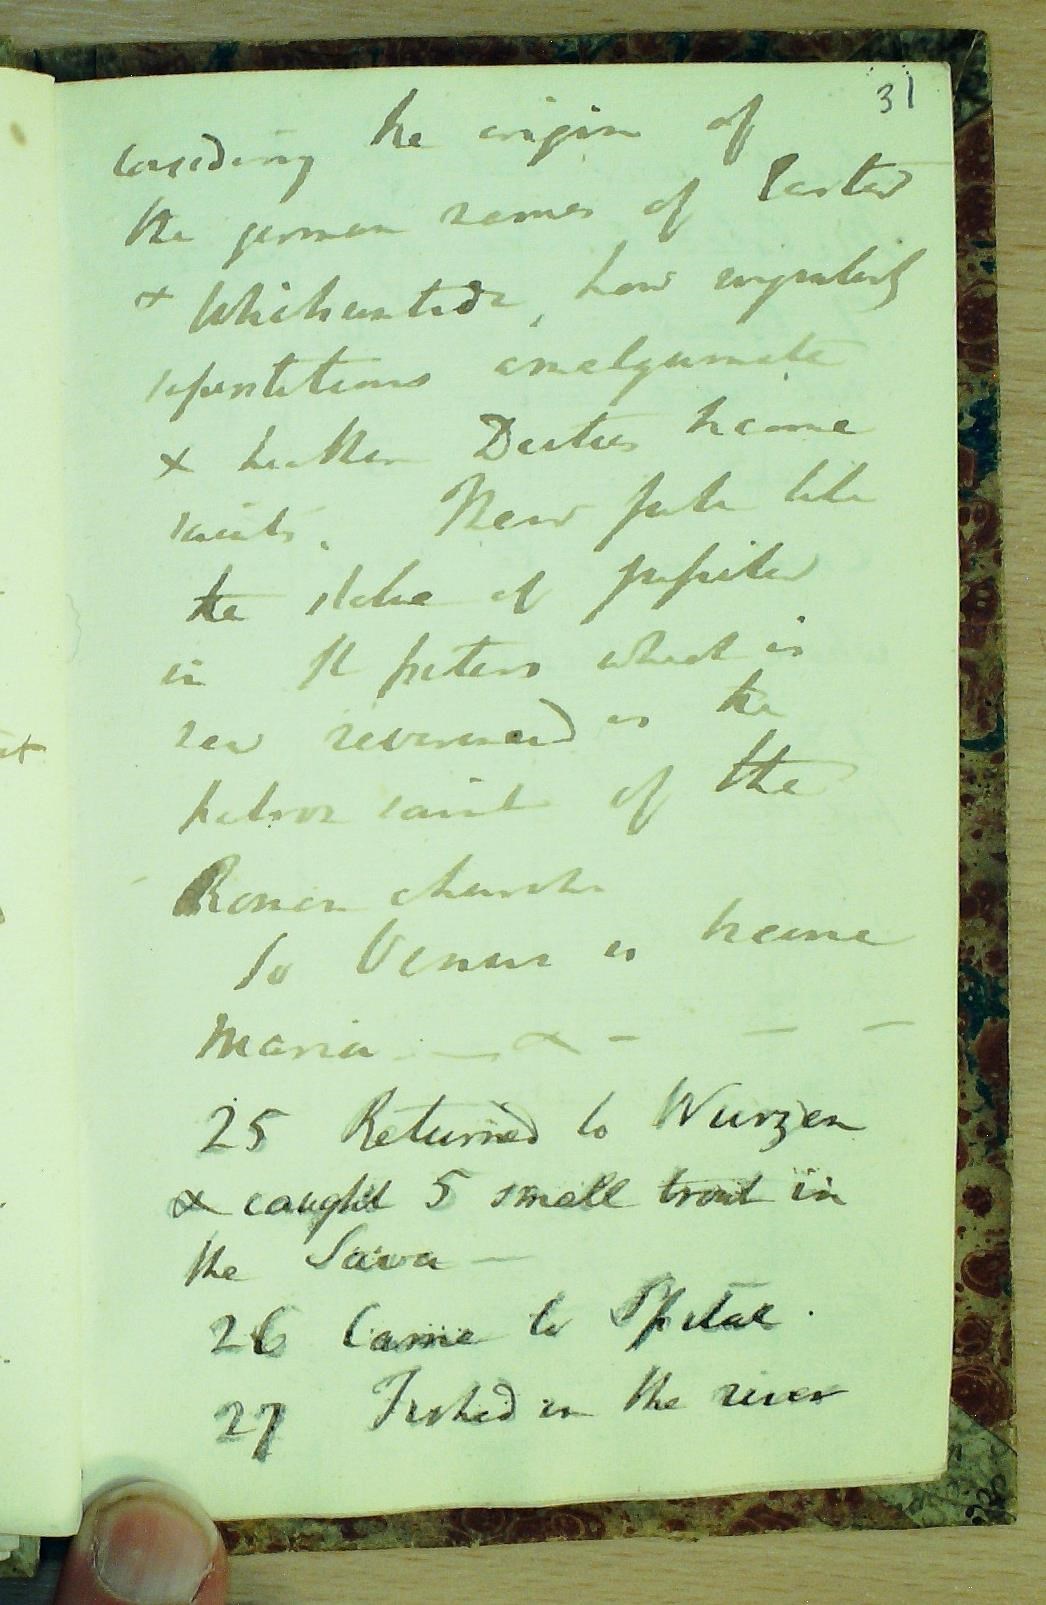 31
considering the origin of
the german names of Easter
& Whitsuntide, how singularly
superstitions amalgamate
& heathen Deities become
saints. New fate like
the statue of jupiter
in St peters which is
now reverenced as the
patron saint of the
Roman church
So Venus is become
Maria — & — — —
25 Returned to Wurzen
& caught 5 small trout in
the Sava —
26 Came to Spital.
27 Fished in the river